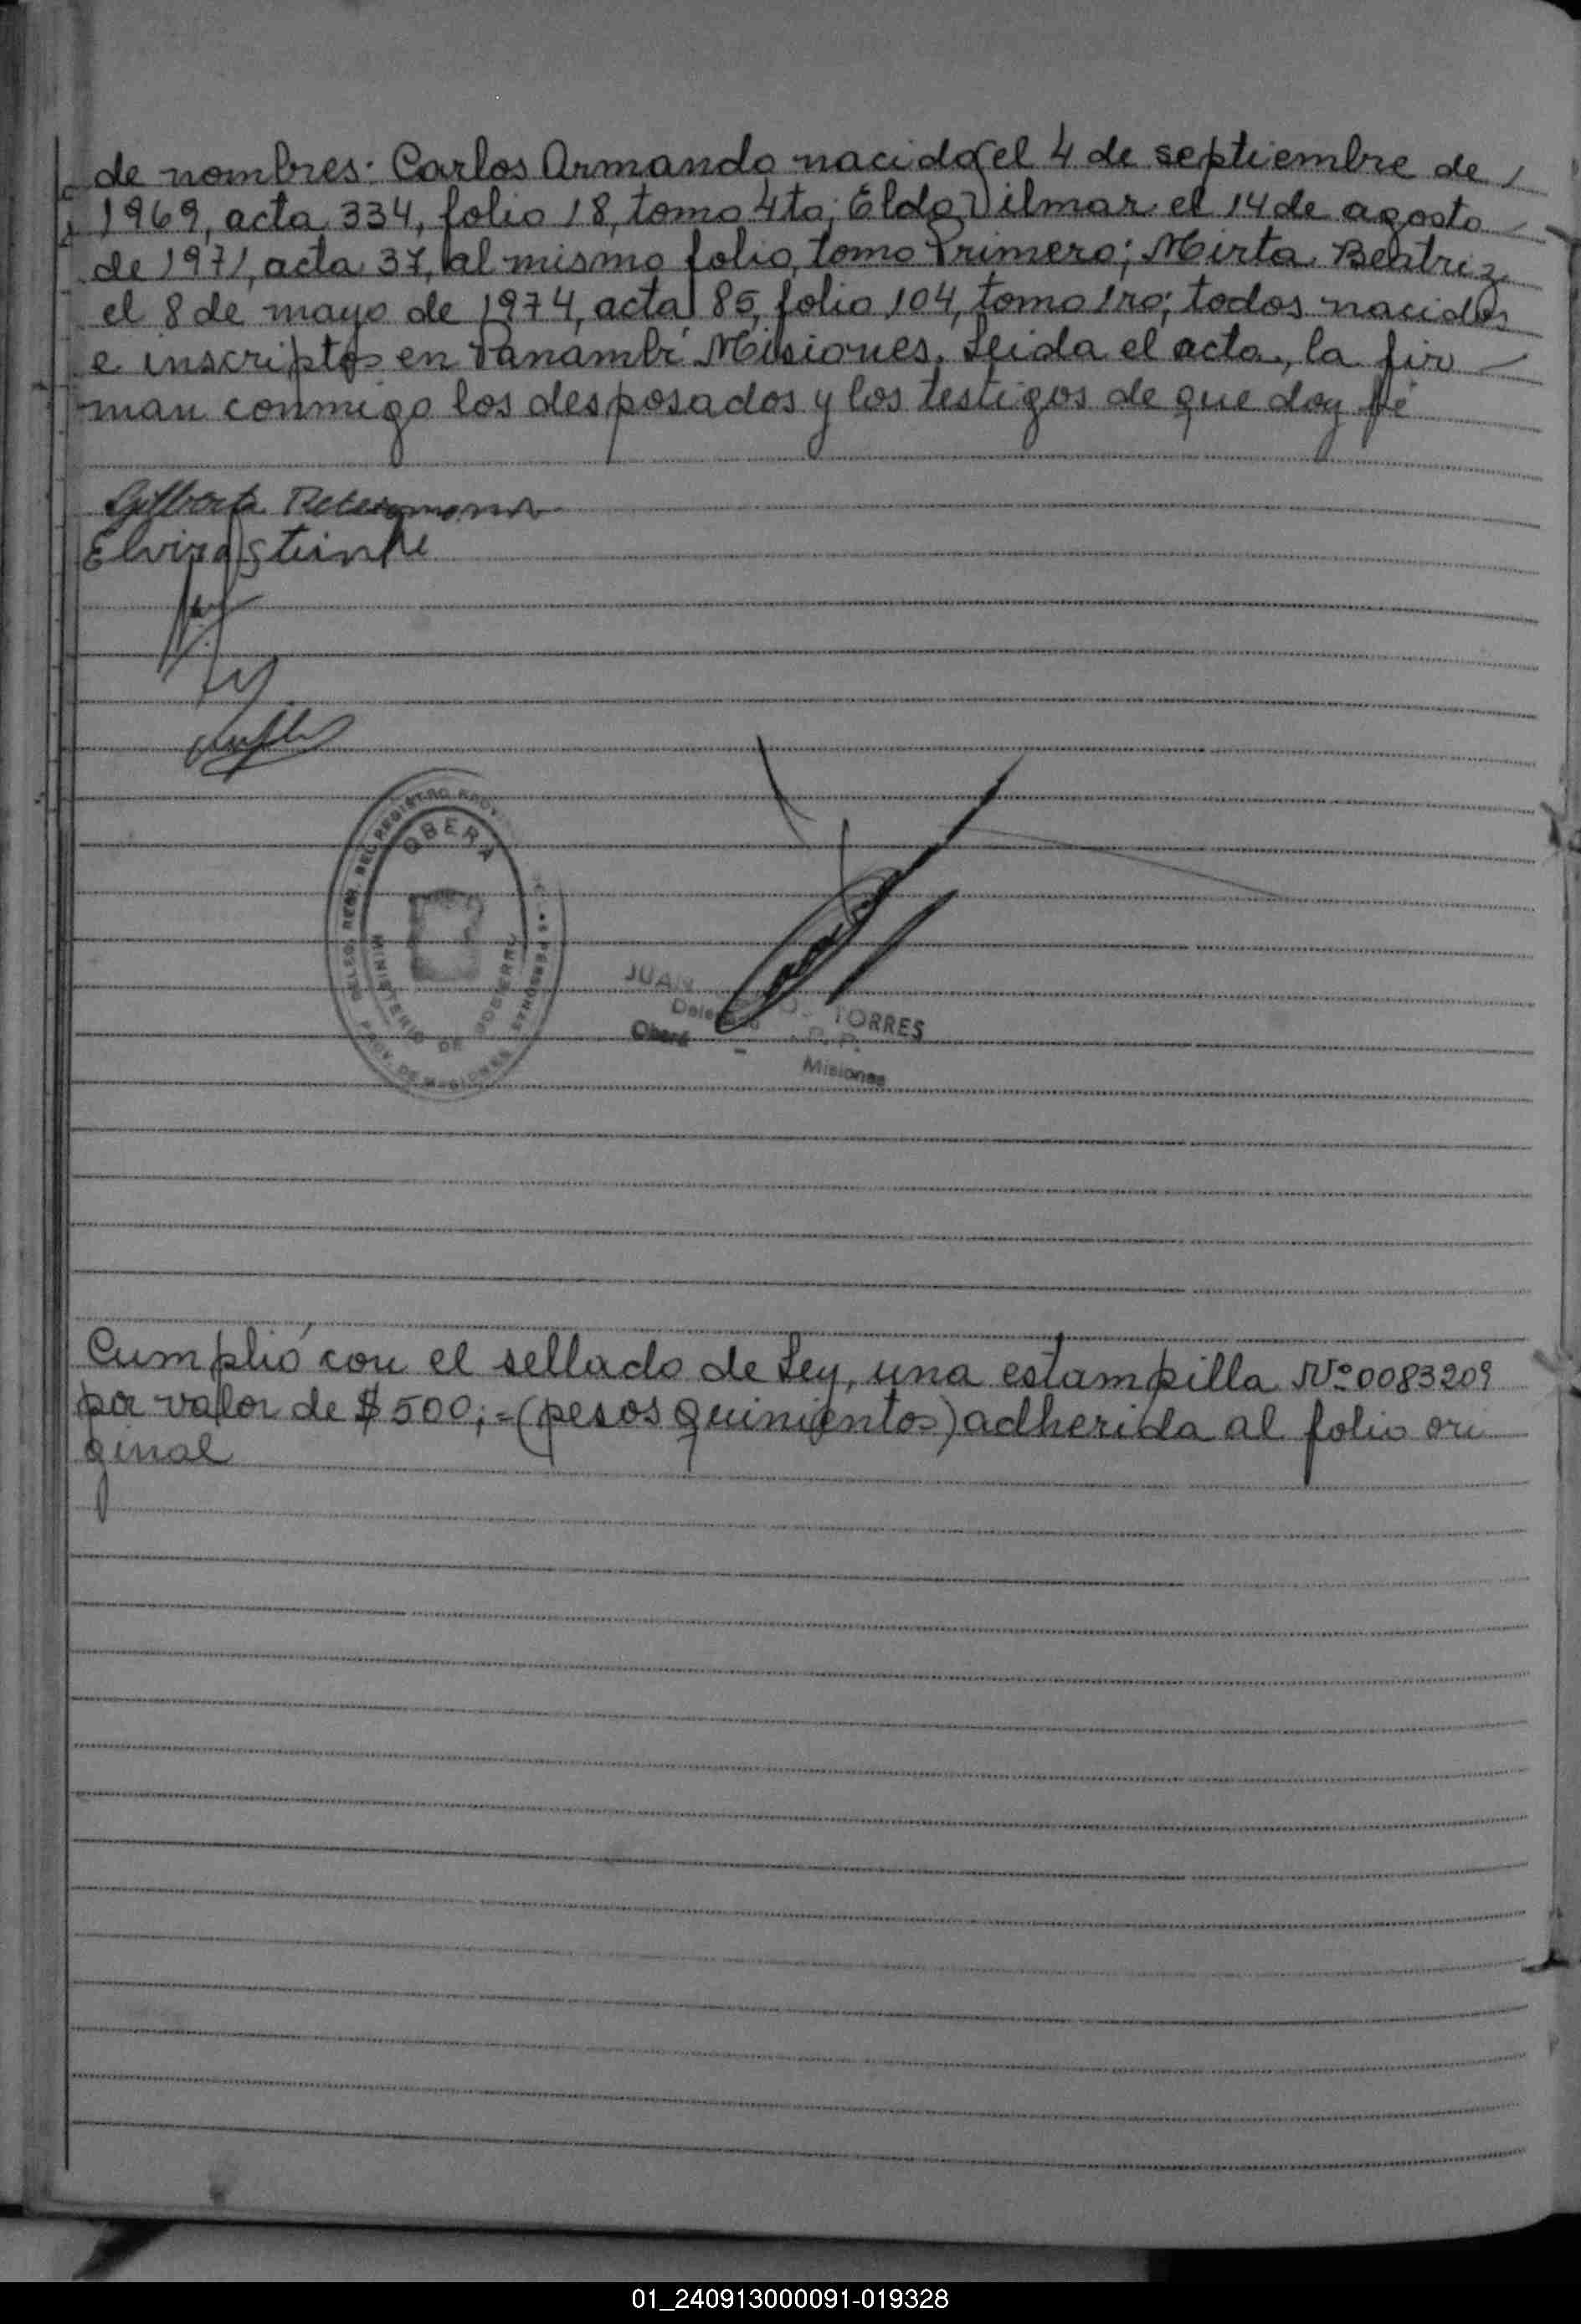 de nombres: Carlos Armando nacido el 4 de septiembre de
1969, acta 334, folio 18, tomo 4to; Eldo Vilmar el 14 de agosto
de 1971, acta 37, al mismo folio, tomo Primero; Mirta Beatriz
el 8 de mayo de 1974, acta 85, folio 104, tomo 1ro; todos nacidos
e inscriptos en Panambí Misiones. Leida el acta, la fir
man conmigo los desposados y los testigos de que doy fé
Elvira Steinke
OBERA
MINISTERIO DE GOBIERNO
PROV. DE MISIONES
JUAN TORRES
Oberá - Misiones
Cumplió con el sellado de Ley, una estampilla Nº 0083209
por valor de $500,=(pesos quinientos) adherida al folio ori
ginal
01_240913000091-019328